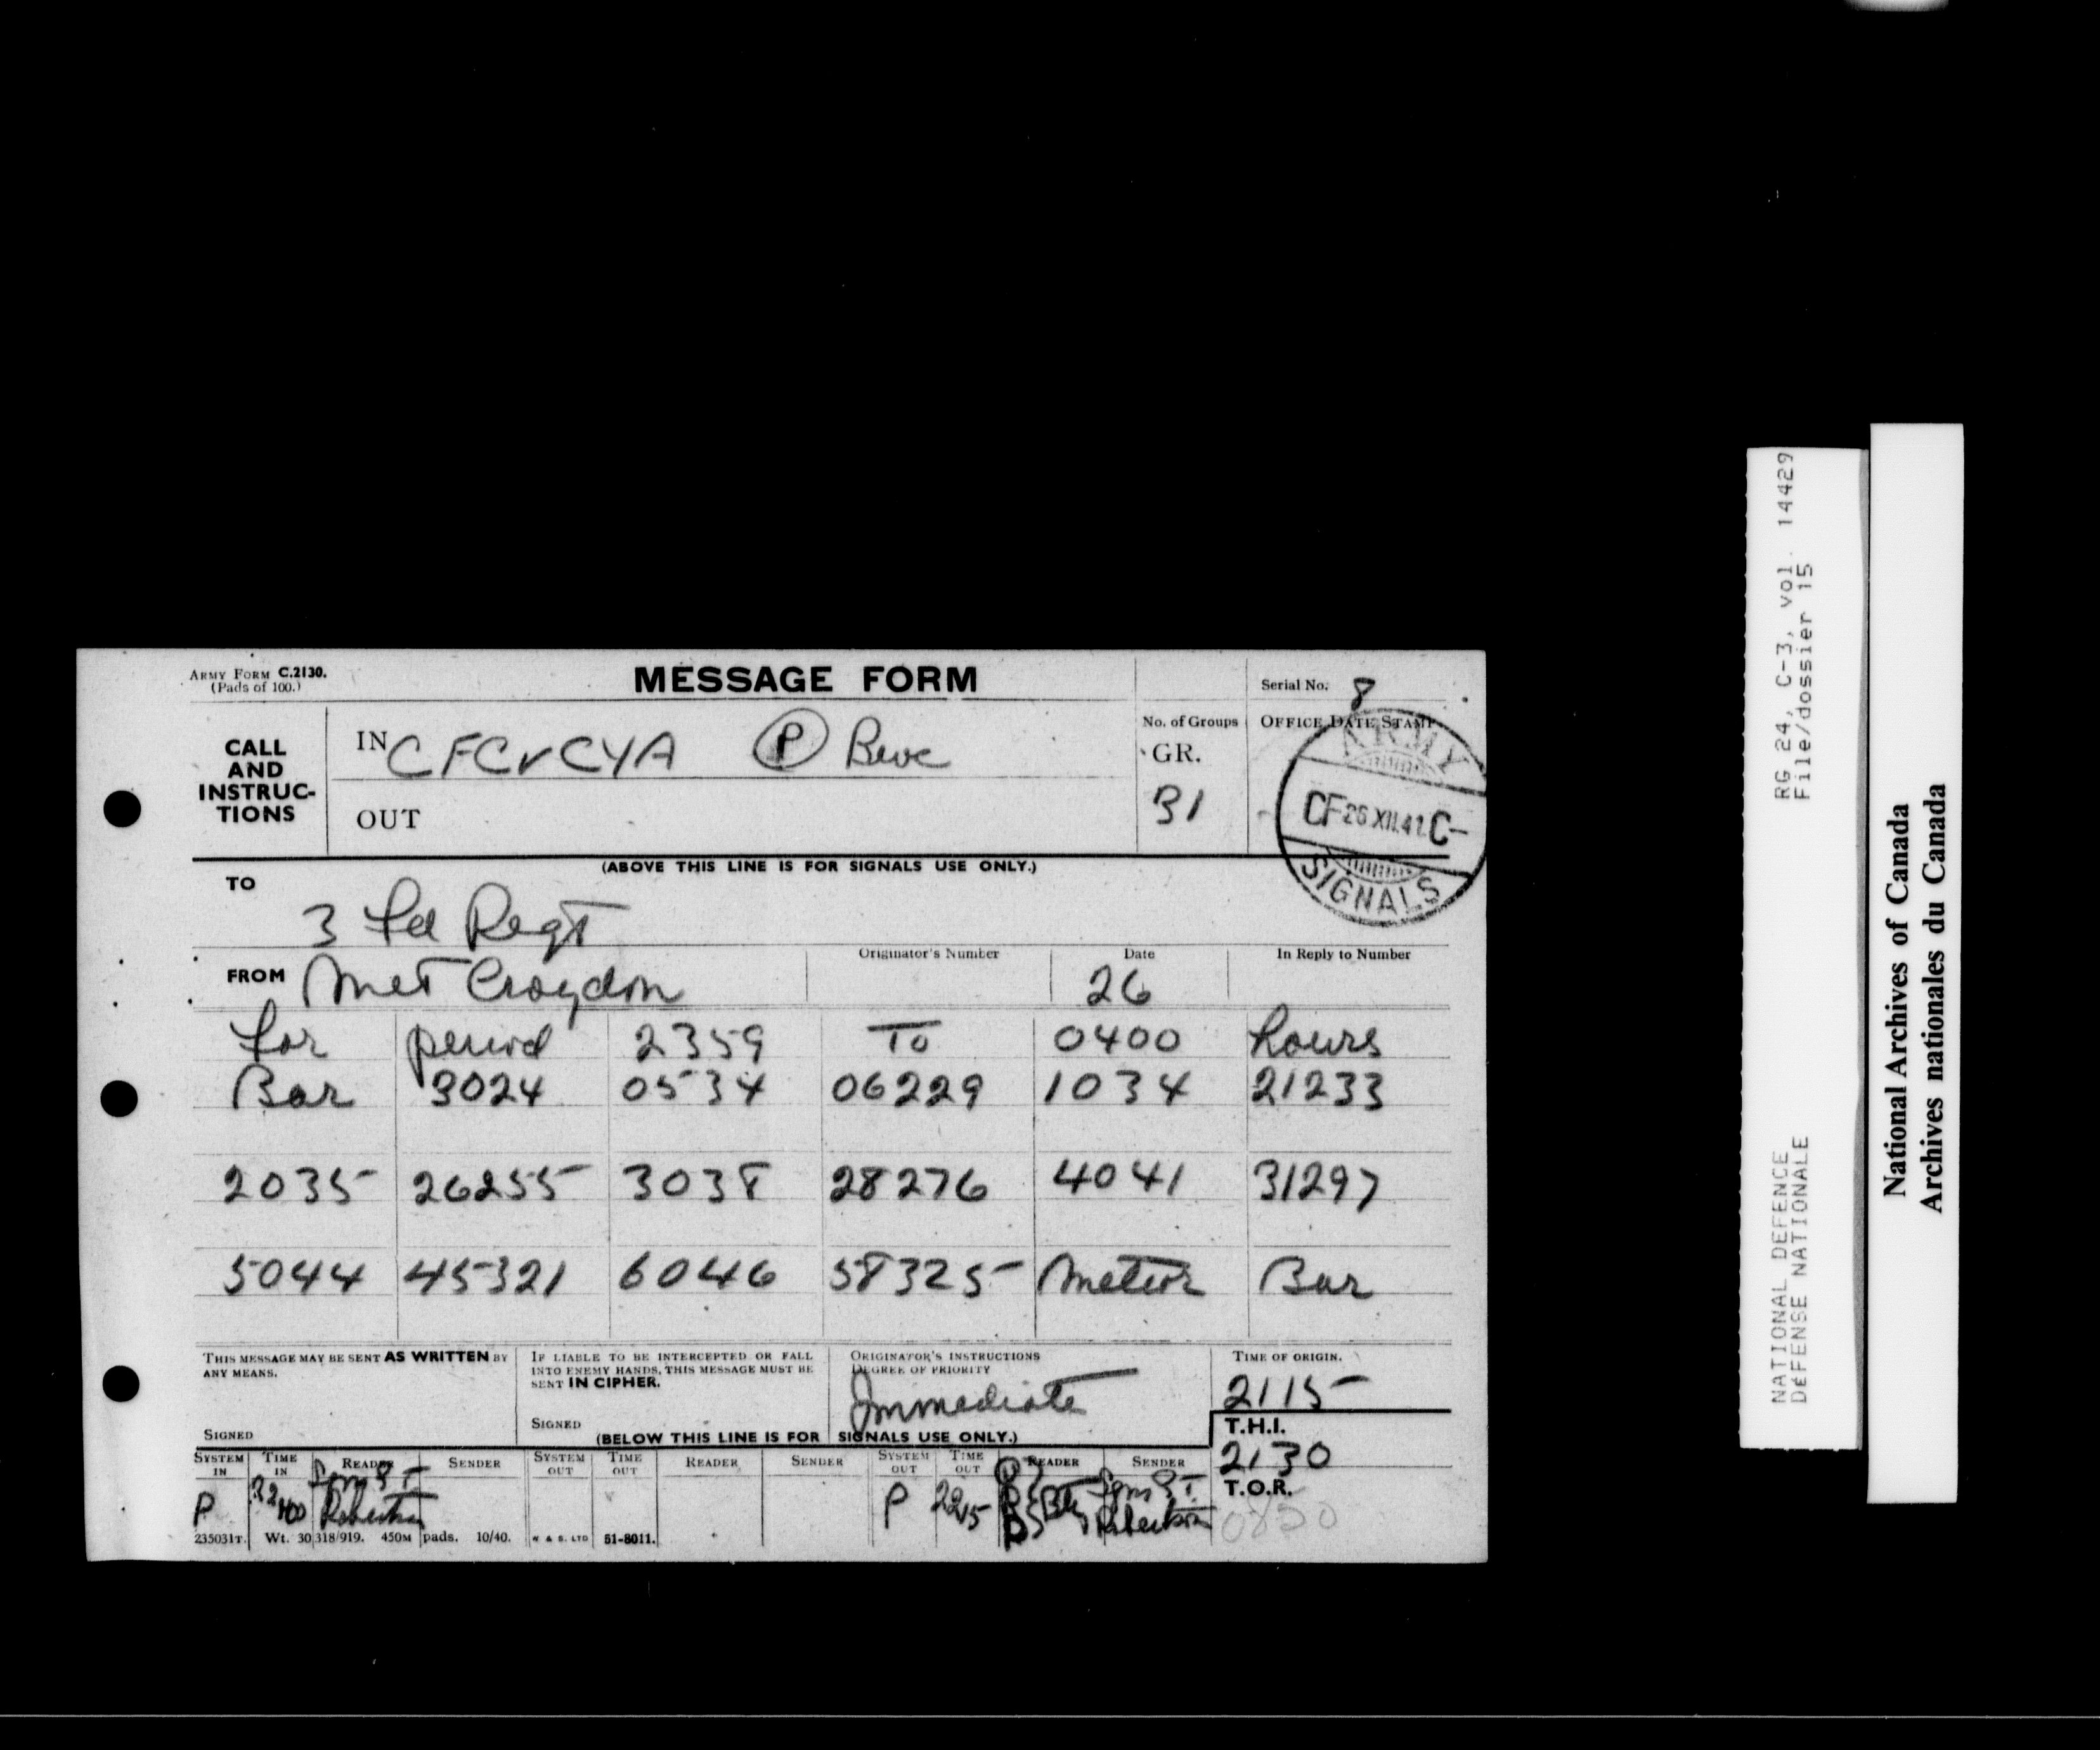 ARMY FORM C.2130.
(Pads of 100.)
MESSAGE FORM
Serial No. 8
CALL AND INSTRUC-TIONS
IN CFC v CYA P
OUT
No. of Groups
GR.
31
OFFICE DATE STAMP
ARMY
CF 26 XII.41 C-
SIGNALS
(ABOVE THIS LINE IS FOR SIGNALS USE ONLY.)
TO
3 Fd Regt
FROM Met Croydon
Originator's Number
Date
26
In Reply to Number
for period 2359 To 0400 hours
Bar 3024 0534 06229 1034 21233
2035 26255 3038 28276 4041 31297
5044 45321 6046 58325 Meteor Bar
THIS MESSAGE MAY BE SENT AS WRITTEN BY
ANY MEANS.
SIGNED
IF LIABLE TO BE INTERCEPTED OR FALL
INTO ENEMY HANDS, THIS MESSAGE MUST BE
SENT IN CIPHER.
SIGNED
ORIGINATOR'S INSTRUCTIONS
DEGREE OF PRIORITY
Immediate
TIME OF ORIGIN.
2115
T.H.I.
2130
T.O.R.
0850
(BELOW THIS LINE IS FOR SIGNALS USE ONLY.)
SYSTEM IN TIME IN READER SENDER SYSTEM OUT TIME OUT READER SENDER SYSTEM OUT TIME OUT READER SENDER
P Robertson P 2215 Robertson
235031T. Wt. 30318/919. 450M pads. 10/40. W & S. LTD 51-8011.
RG 24, C-3, vol. 14429
File/dossier 15
NATIONAL DEFENCE
DÉFENSE NATIONALE
National Archives of Canada
Archives nationales du Canada